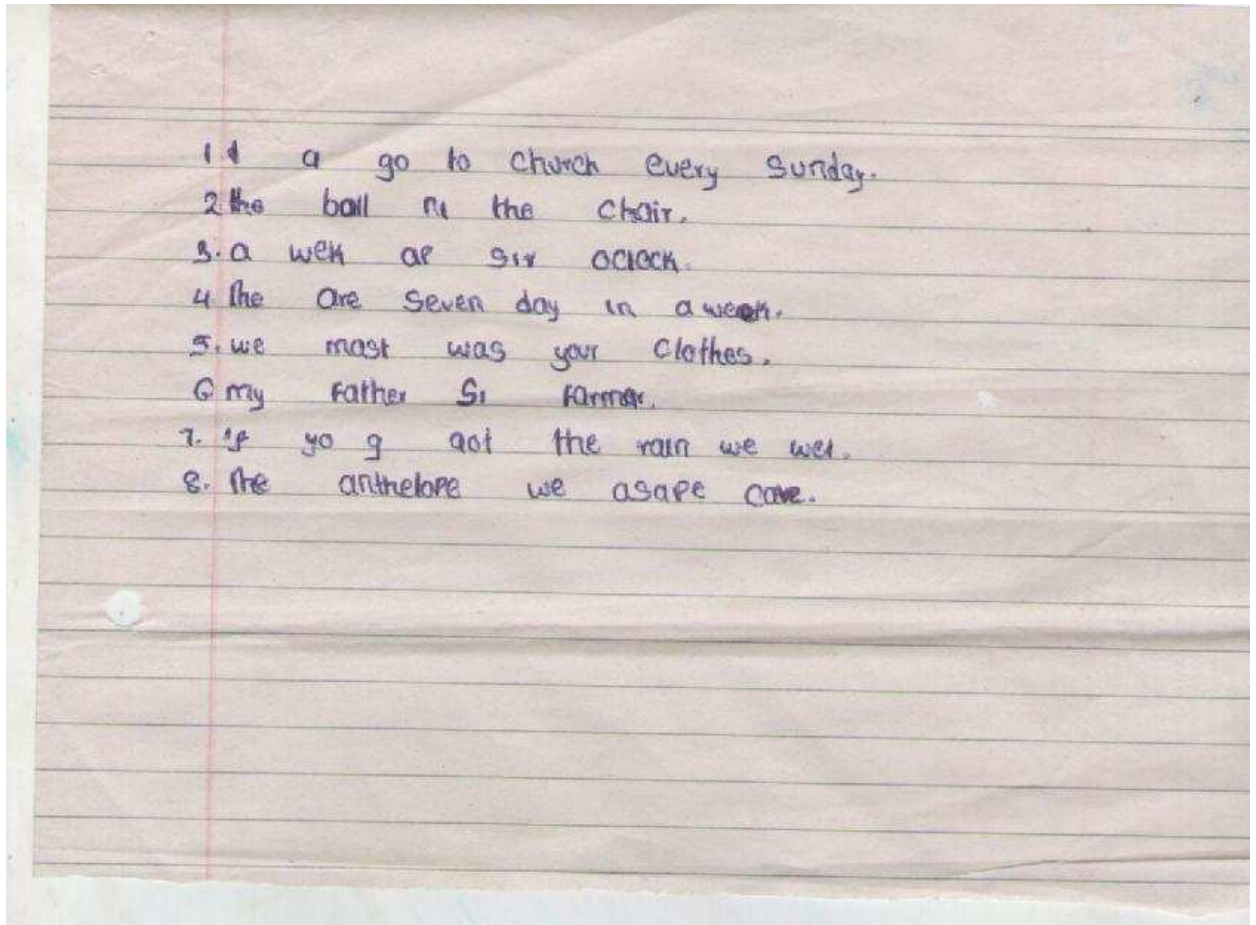 1 I a go to church every Sunday.
2. the ball ni the chair.
3. a wek ap six oclock.
4 The are seven day in a week.
5. we mast was your clothes.
6 my father Si farmer.
7. if yo g qot the rain we wet.
8. The anthelope we asape cave.